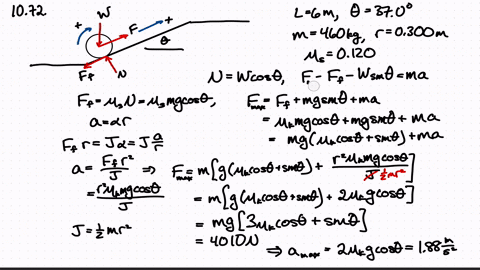 10.72
W
+
F
+
θ
F_f
N
L=6m, θ=37.0°
m=460kg, r=0.300m
μ_s=0.120
N=Wcosθ, F-F_f-Wsinθ=ma
F_f=μ_sN=μ_smgcosθ,
a=αr
F_f r=Jα=J a/r
a=F_f r²/J ⇒
=r²μ_kmgcosθ/J
J=½mr²
F_max=F_f+mgsinθ+ma
=μ_kmgcosθ+mgsinθ+ma
=mg(μ_kcosθ+sinθ)+ma
F_max=m[g(μ_kcosθ+sinθ)+r²μ_kmgcosθ/J ½mr²]
=m[g(μ_kcosθ+sinθ)+2μ_kgcosθ]
=mg[3μ_kcosθ+sinθ]
=4010N
⇒ a_max=2μ_kgcosθ=1.88 m/s²